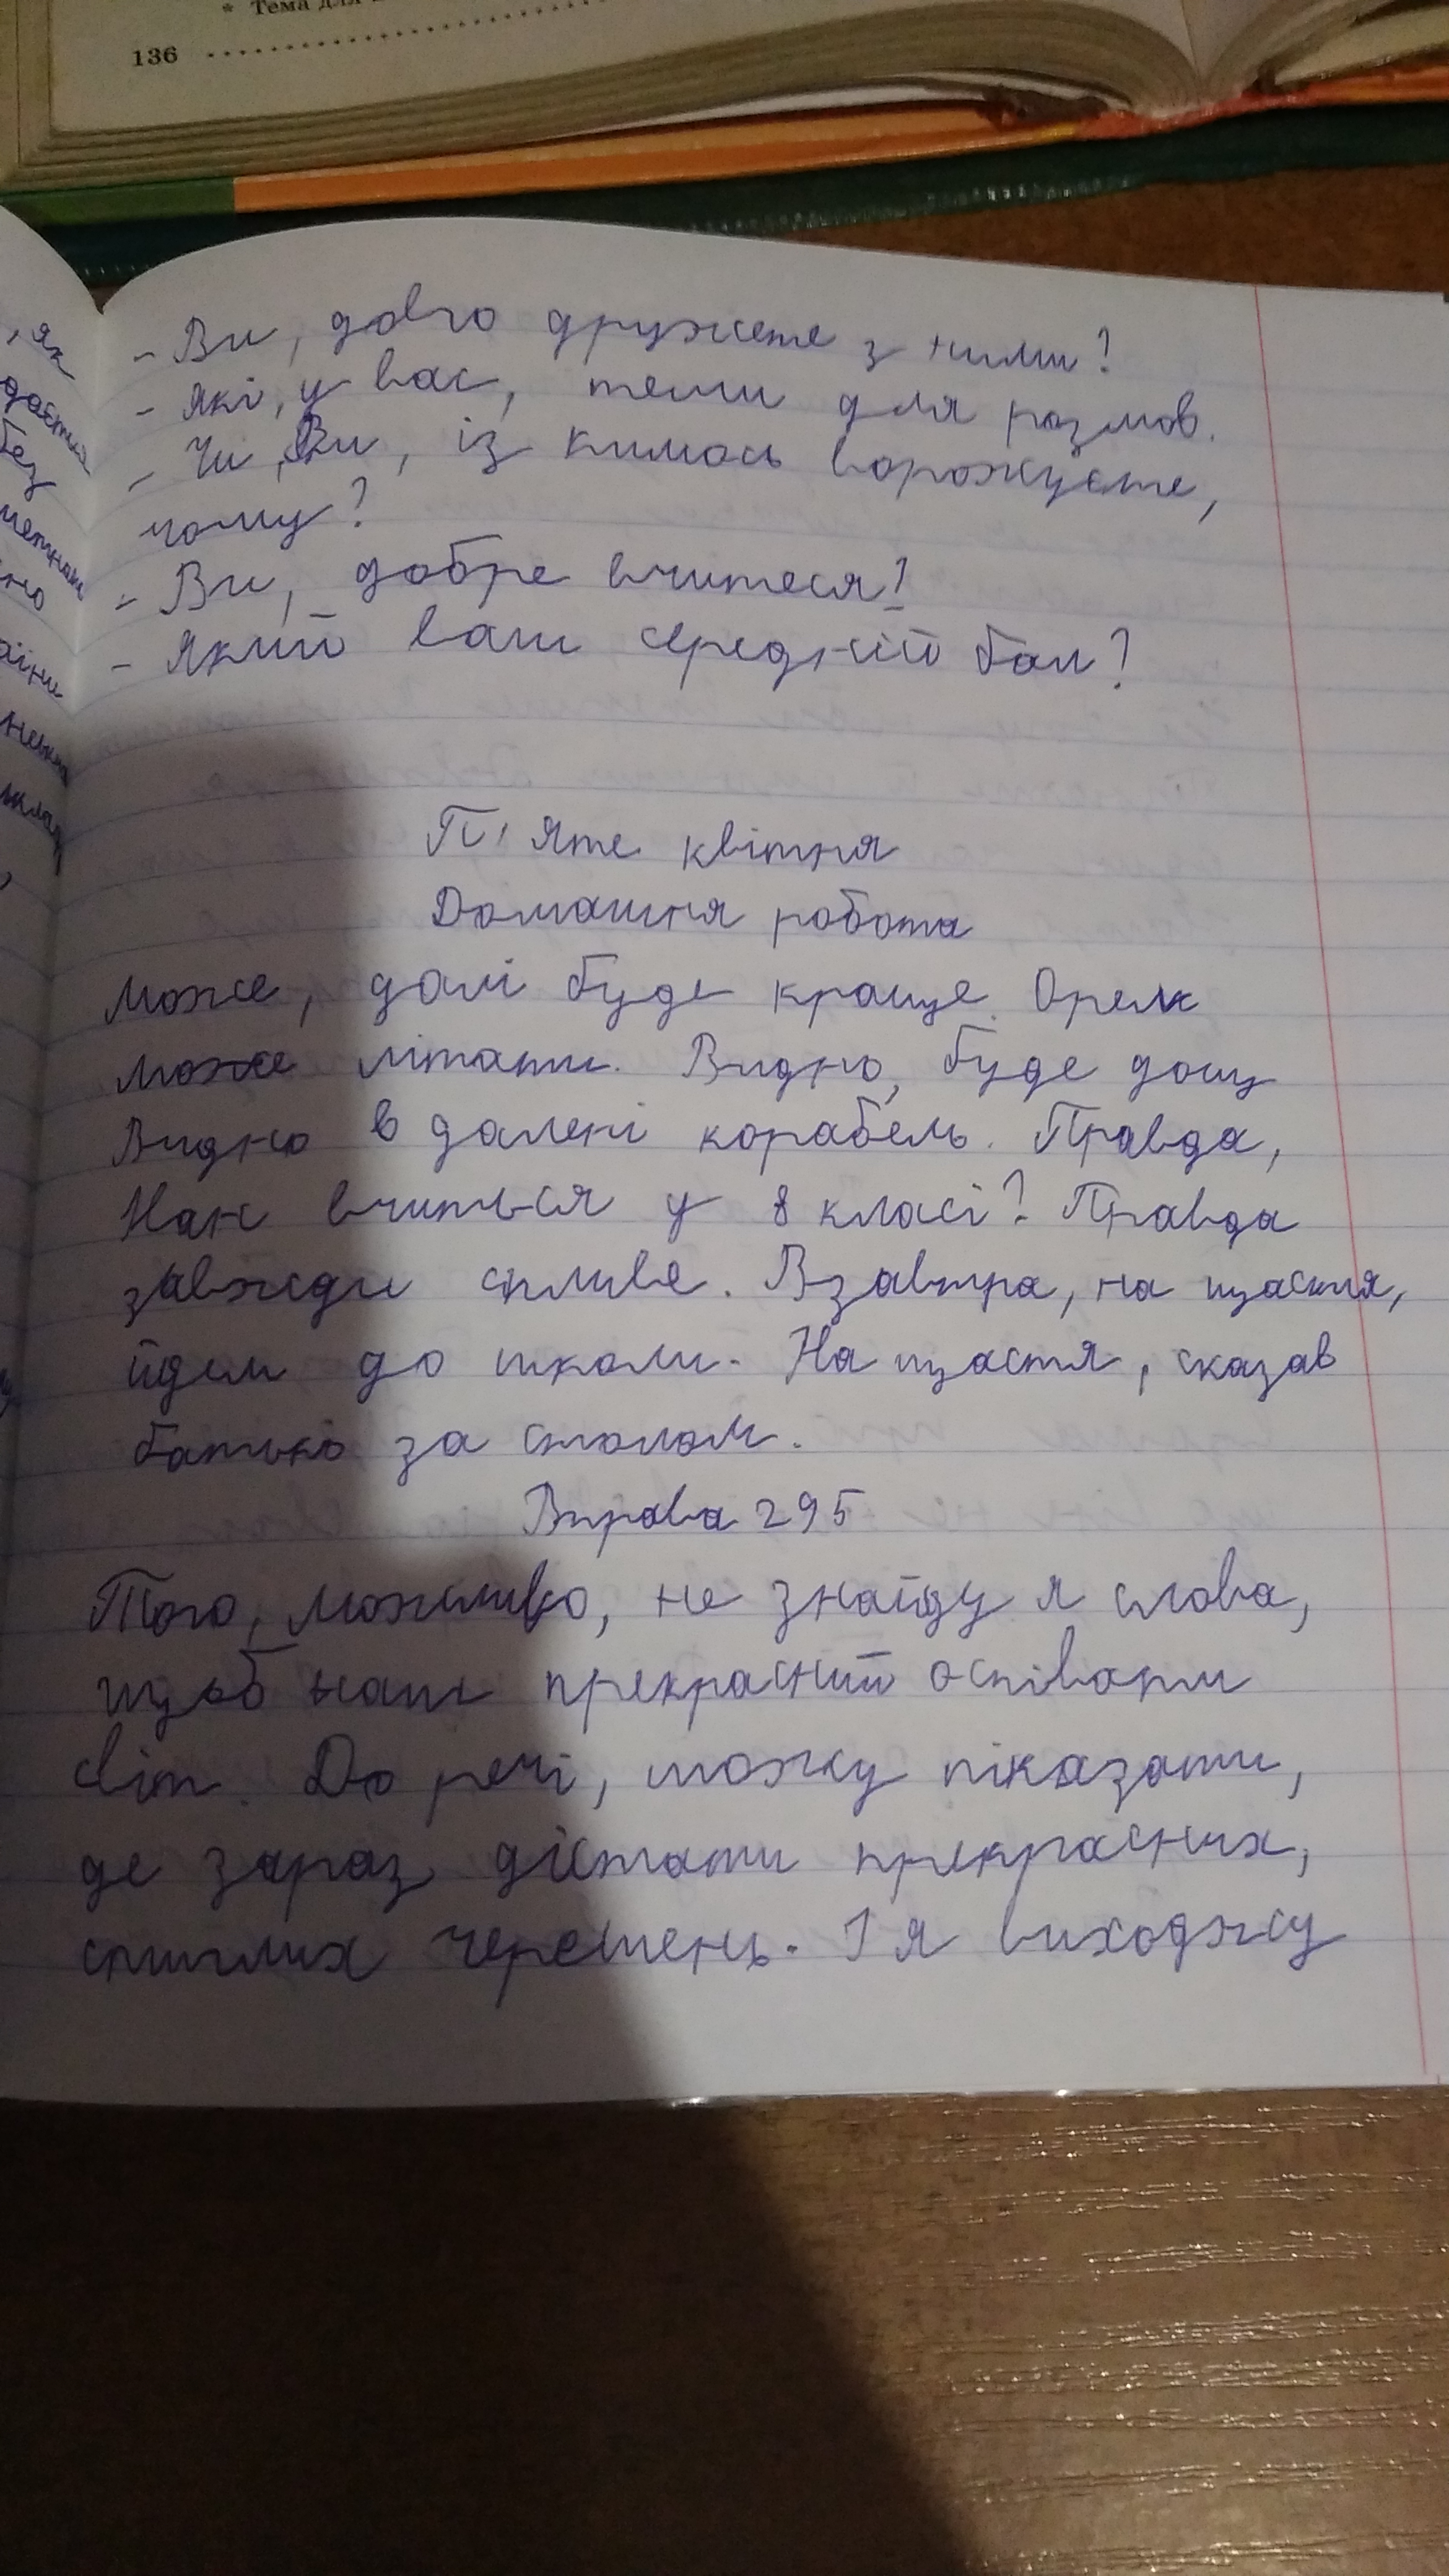 * Тема для
136
- Ви, довго дружете з ними?
- які, у вас, теми для розмов.
- Чи, Ви, із кимось ворожуєте,
чому?
- Ви, добре вчитеся?
- Який ваш середній бал?
П'яте квітня
Домашня робота
Може, далі буде краще. Орел
може літати. Видно, буде дощ
Видно в далені корабель. Правда,
Іван вчиться у 8 класі? Правда
завжди спливе. Взавтра, на щастя,
йдем до школи. На щастя, сказав
батько за столом.
Вправа 295
Того, можливо, не знайду я слова,
щоб наш прекрасний оспівати
світ. До речі, можу піказати,
де зараз дістати прекрасних,
спиглих черешень. І я виходжу
, як
дається
без
но